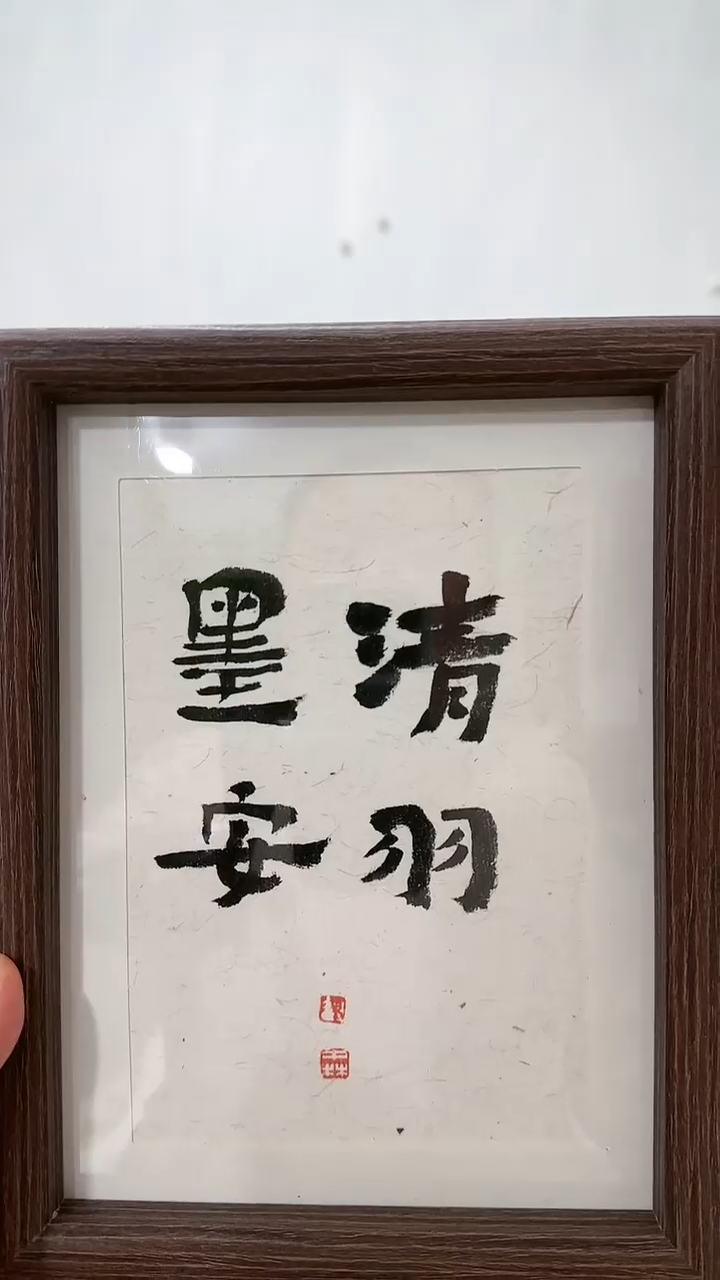 清羽
墨安